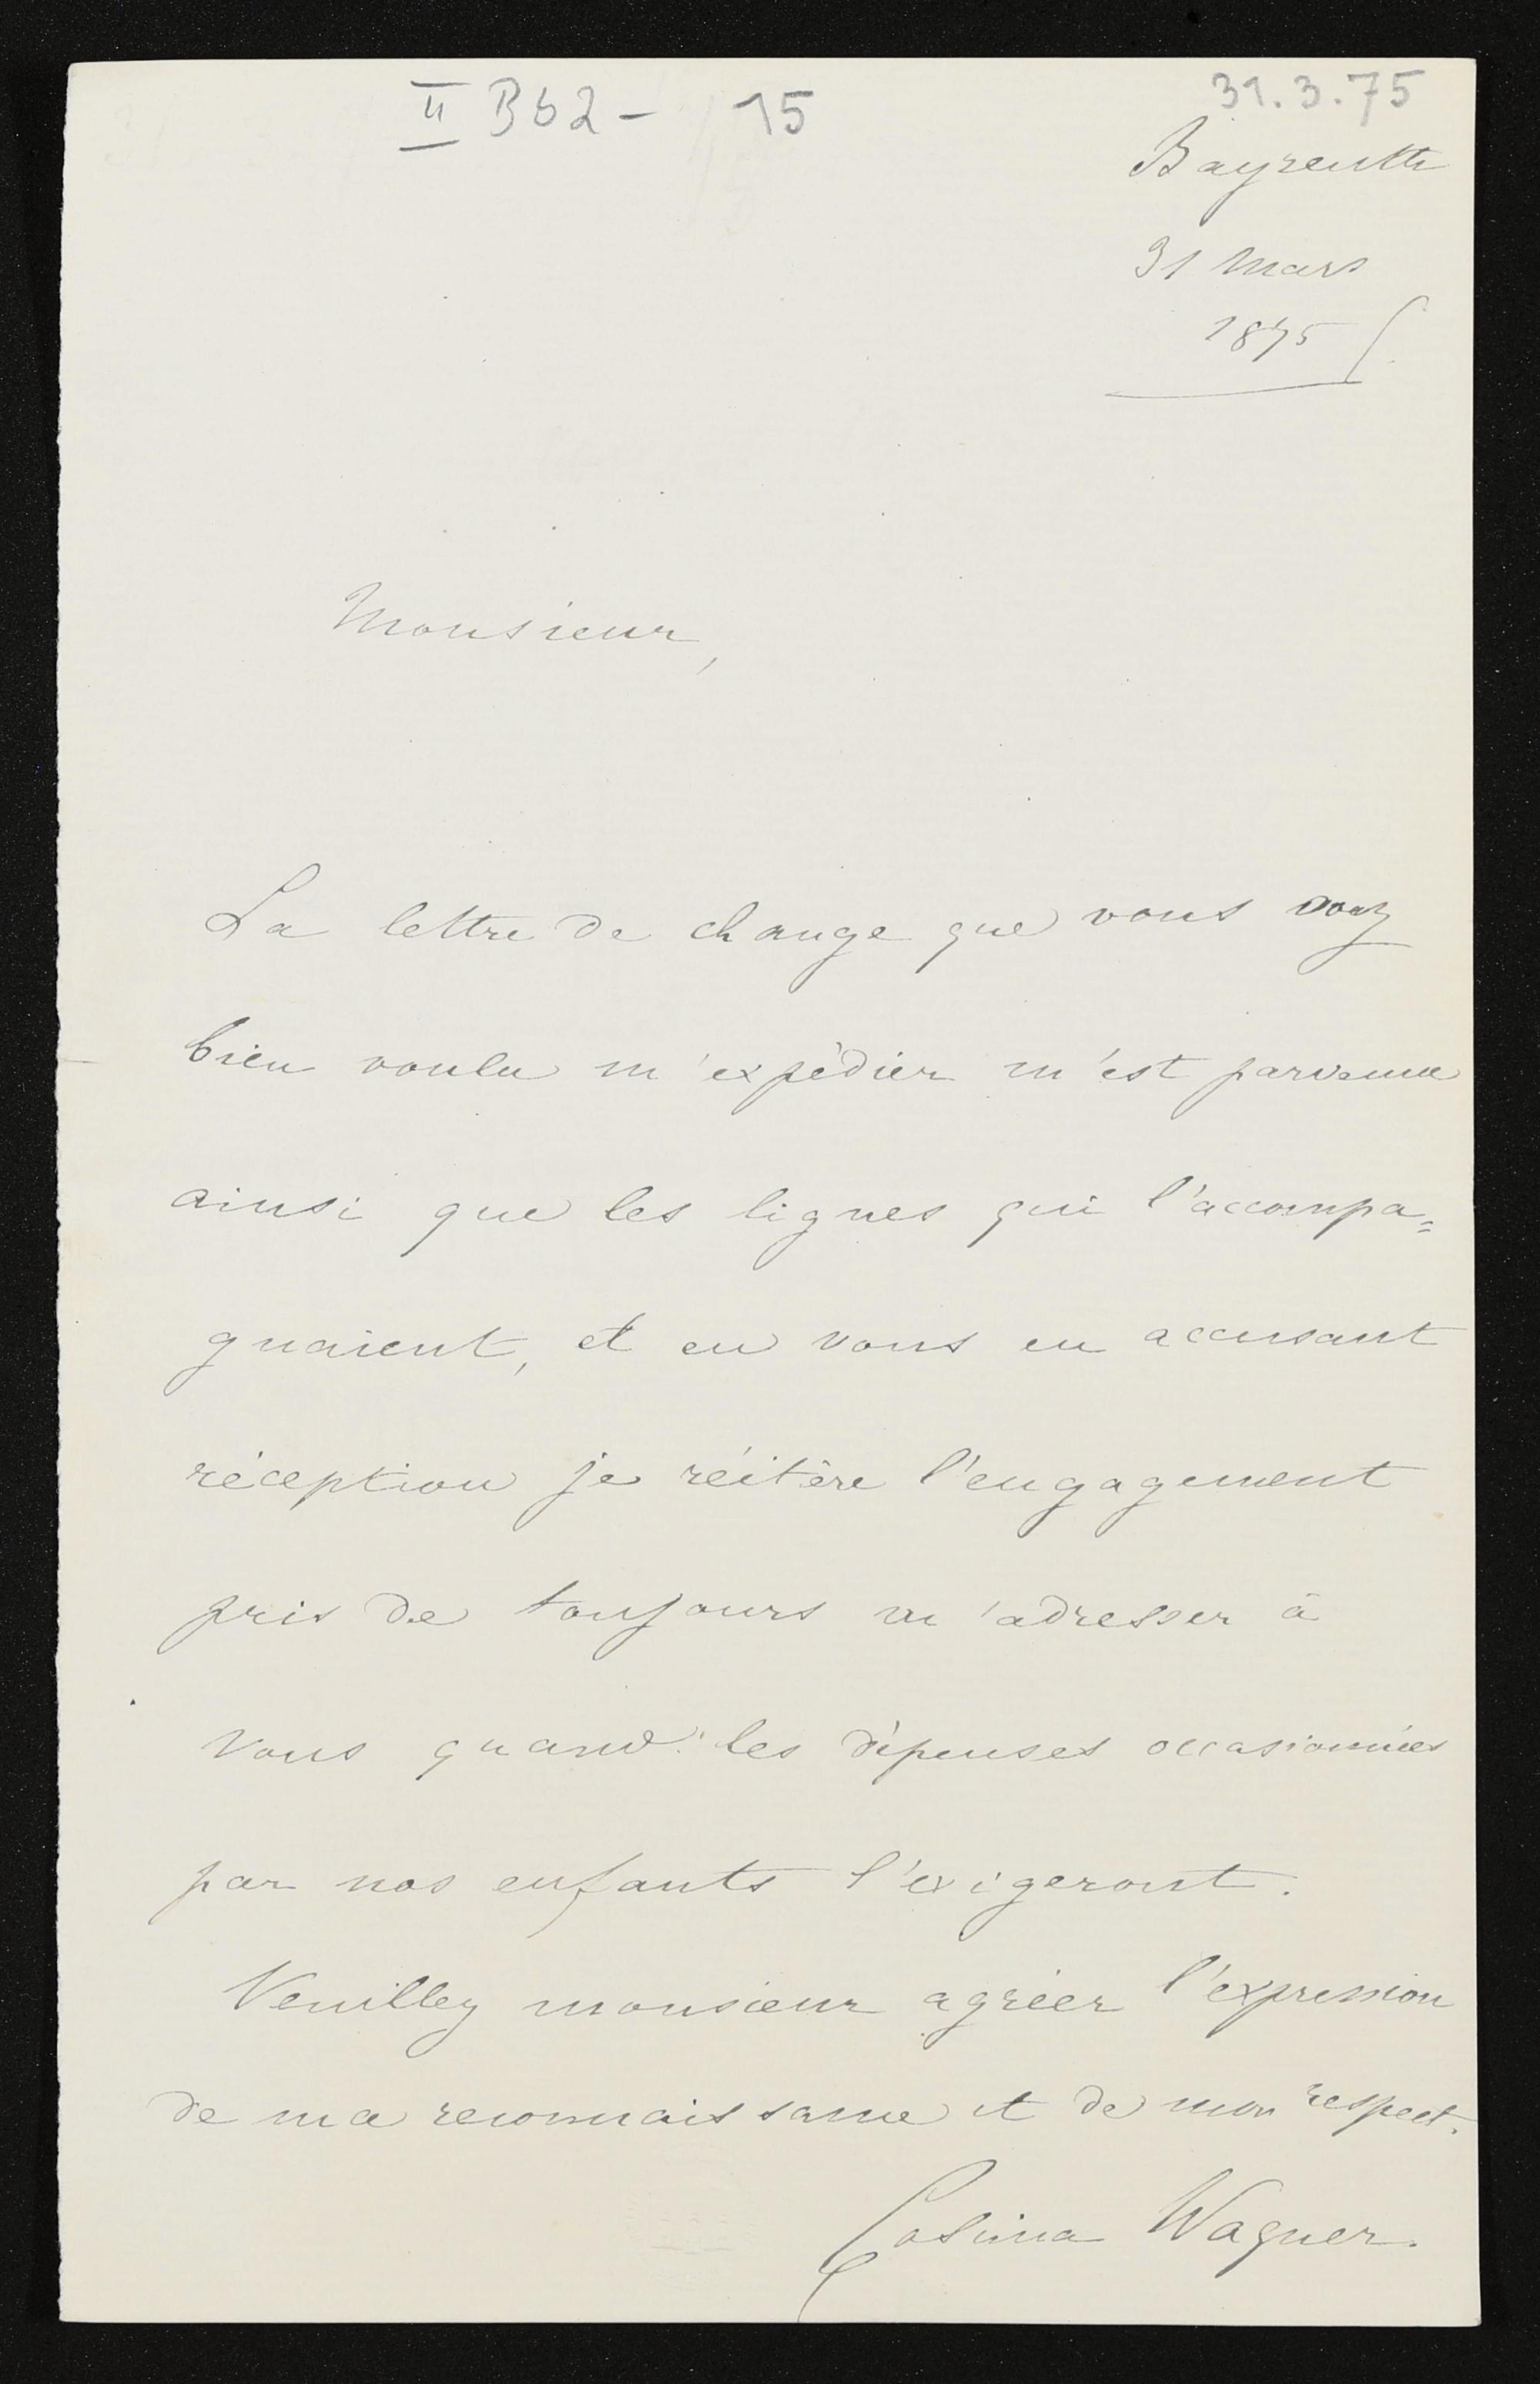 II Bb2 - 15
31.3.75
Bayreuth
31 Mars
1875
Monsieur,
La lettre de change que vous avez
bien voulu m'expédier m'est parvenue
ainsi que les lignes qui l'accompa=
gnaient, et en vous en accusant
réception je réitère l'engagement
pris de toujours m'adresser à
vous quand les dépenses occasionnées
par nos enfants l'exigeront.
Veuillez monsieur agréer l'expression
de ma reconnaissance et de mon respect.
Cosima Wagner.